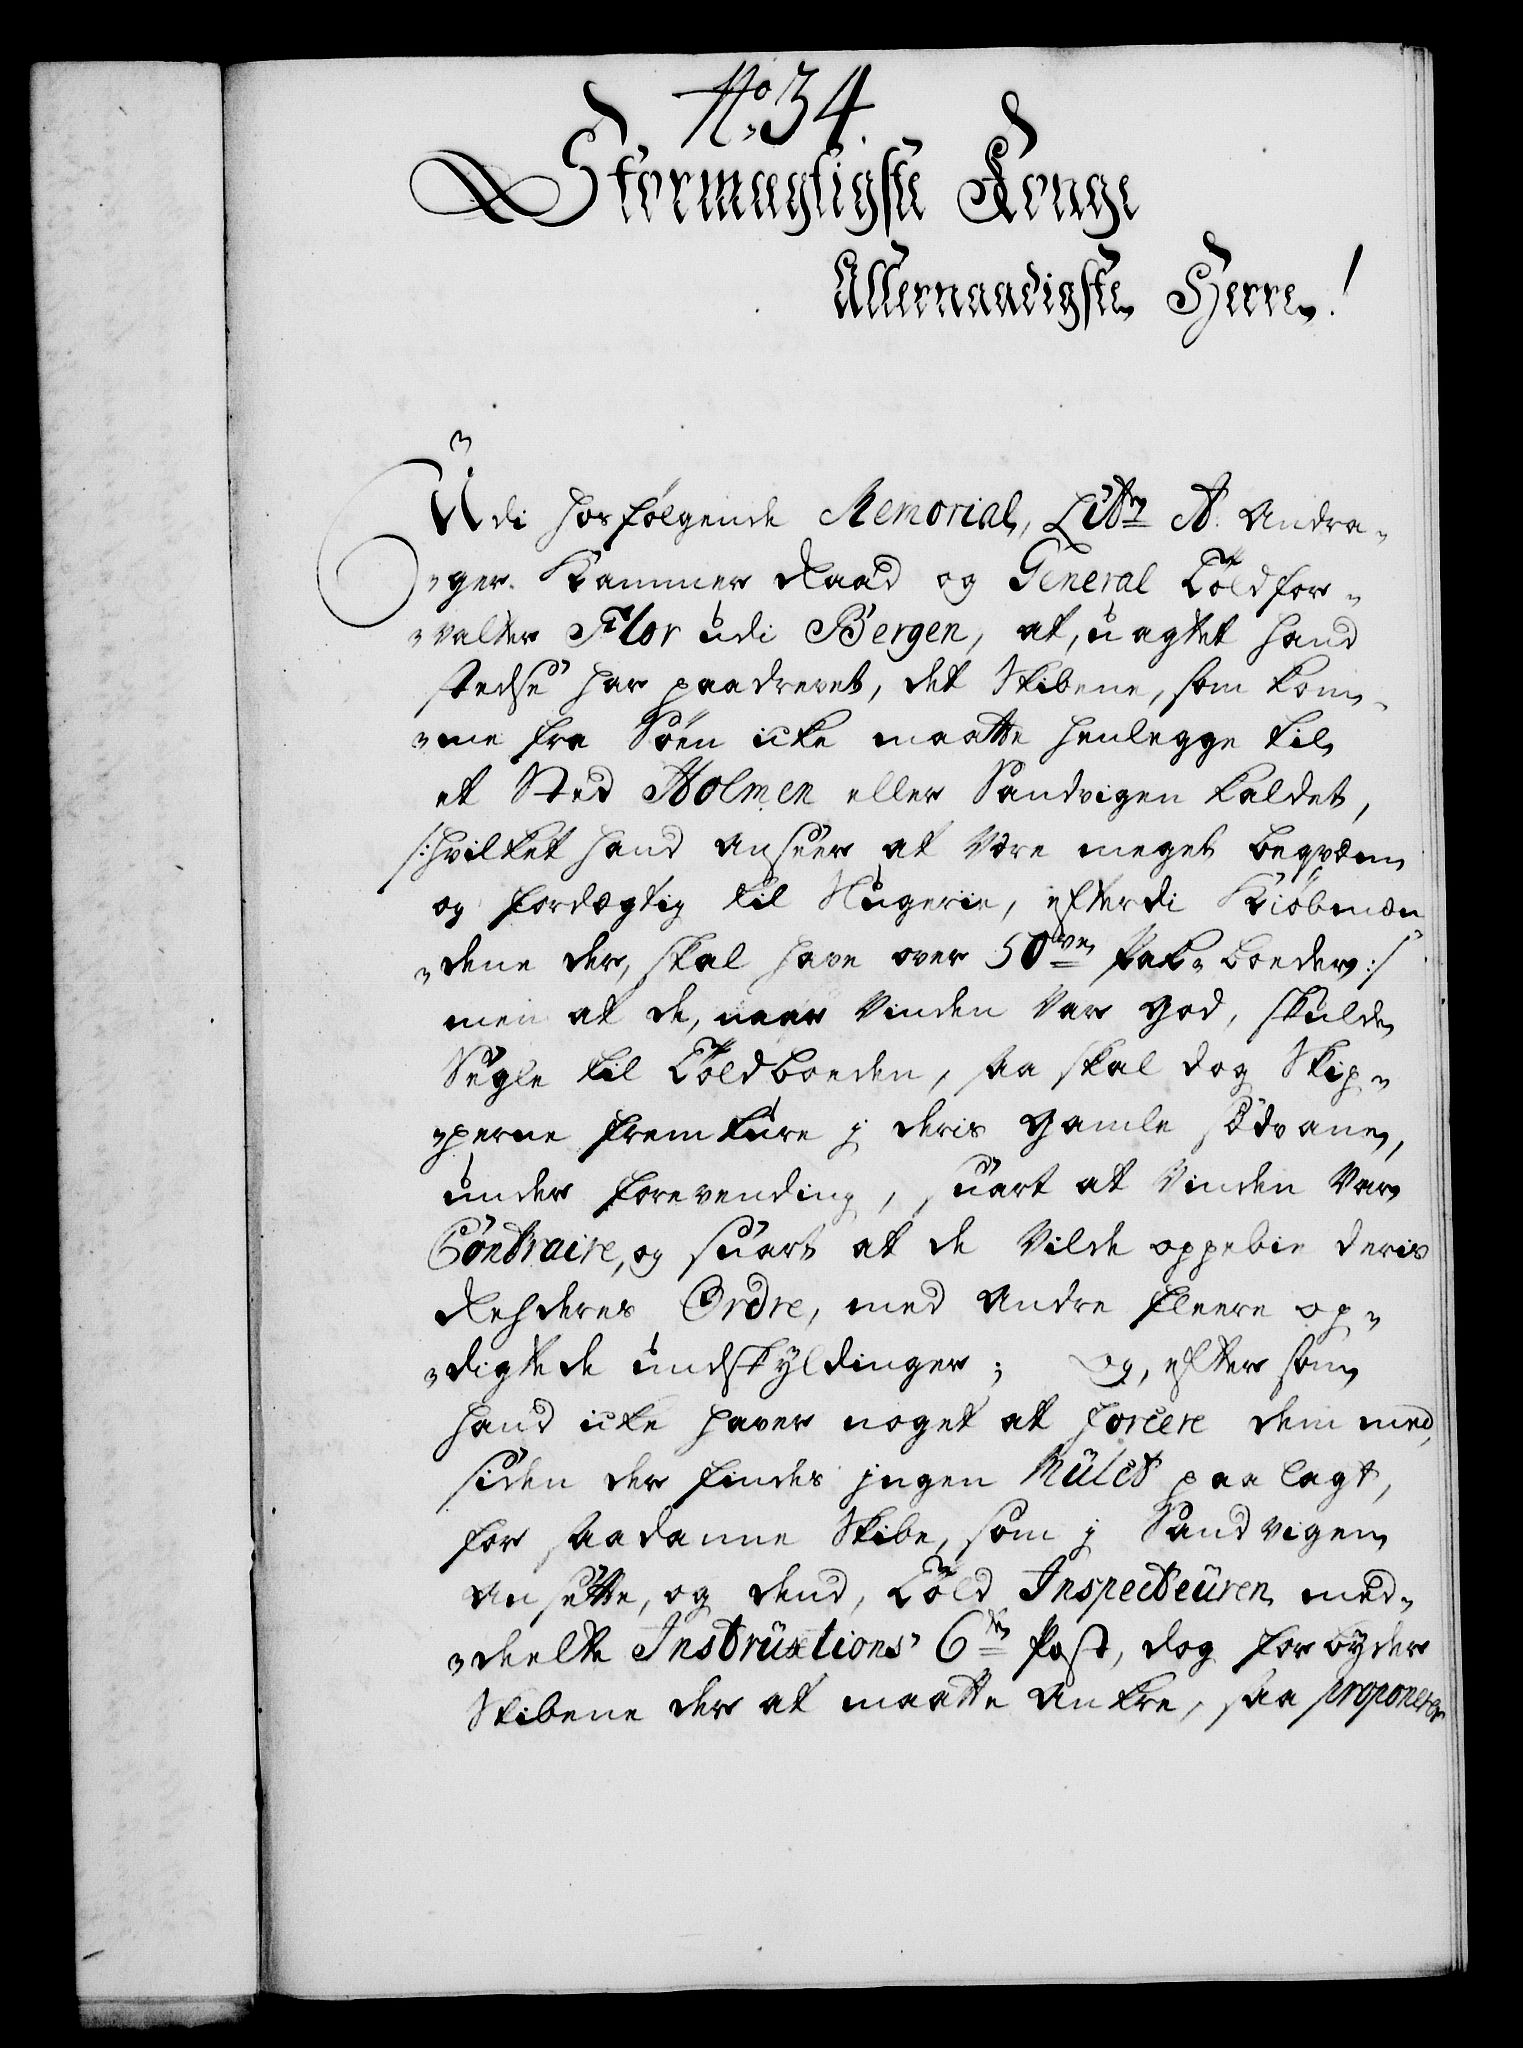 No. 34.
Stormægtigste Konge
Allernaadigste Herre!
Udi hosfølgende Memorial, Litr. A. andra-
-ger Kammer Raad og General Told for-
-valter Flor udi Bergen, at, uagtet hand
stedse har paadrevet, det Skibene, som kom-
-me fra Søen icke maatte henlegge til
et Sted Holmen eller Sandvigen kaldet,
/: hvilket hand anseer at være meget beqvæm
og fordægtig til Snigerie, efterdi Kiøbmæn
-dene der, skal have over 50ve Pak-boeder :/
men at de, naar Vinden var god, skulde
Segle til Toldboeden, saa skal dog Skip-
-perne fremture j deris gamle sædvane,
under forevending, snart at Vinden var
Contraire, og snart at de vilde oppebie deris
Rehderes Ordre, med andre fleere op-
-digtede undskyldinger; Og, efter som
hand icke haver noget at forcere dem med,
siden der findes jngen Mulct paa lagt,
for saadanne Skibe, som j Sandvigen
ansette, og dend, Told Inspecteuren med-
-deelte Instructions 6te Post, dog forbyder
Skibene der at maatte Ankre, saa proponerer